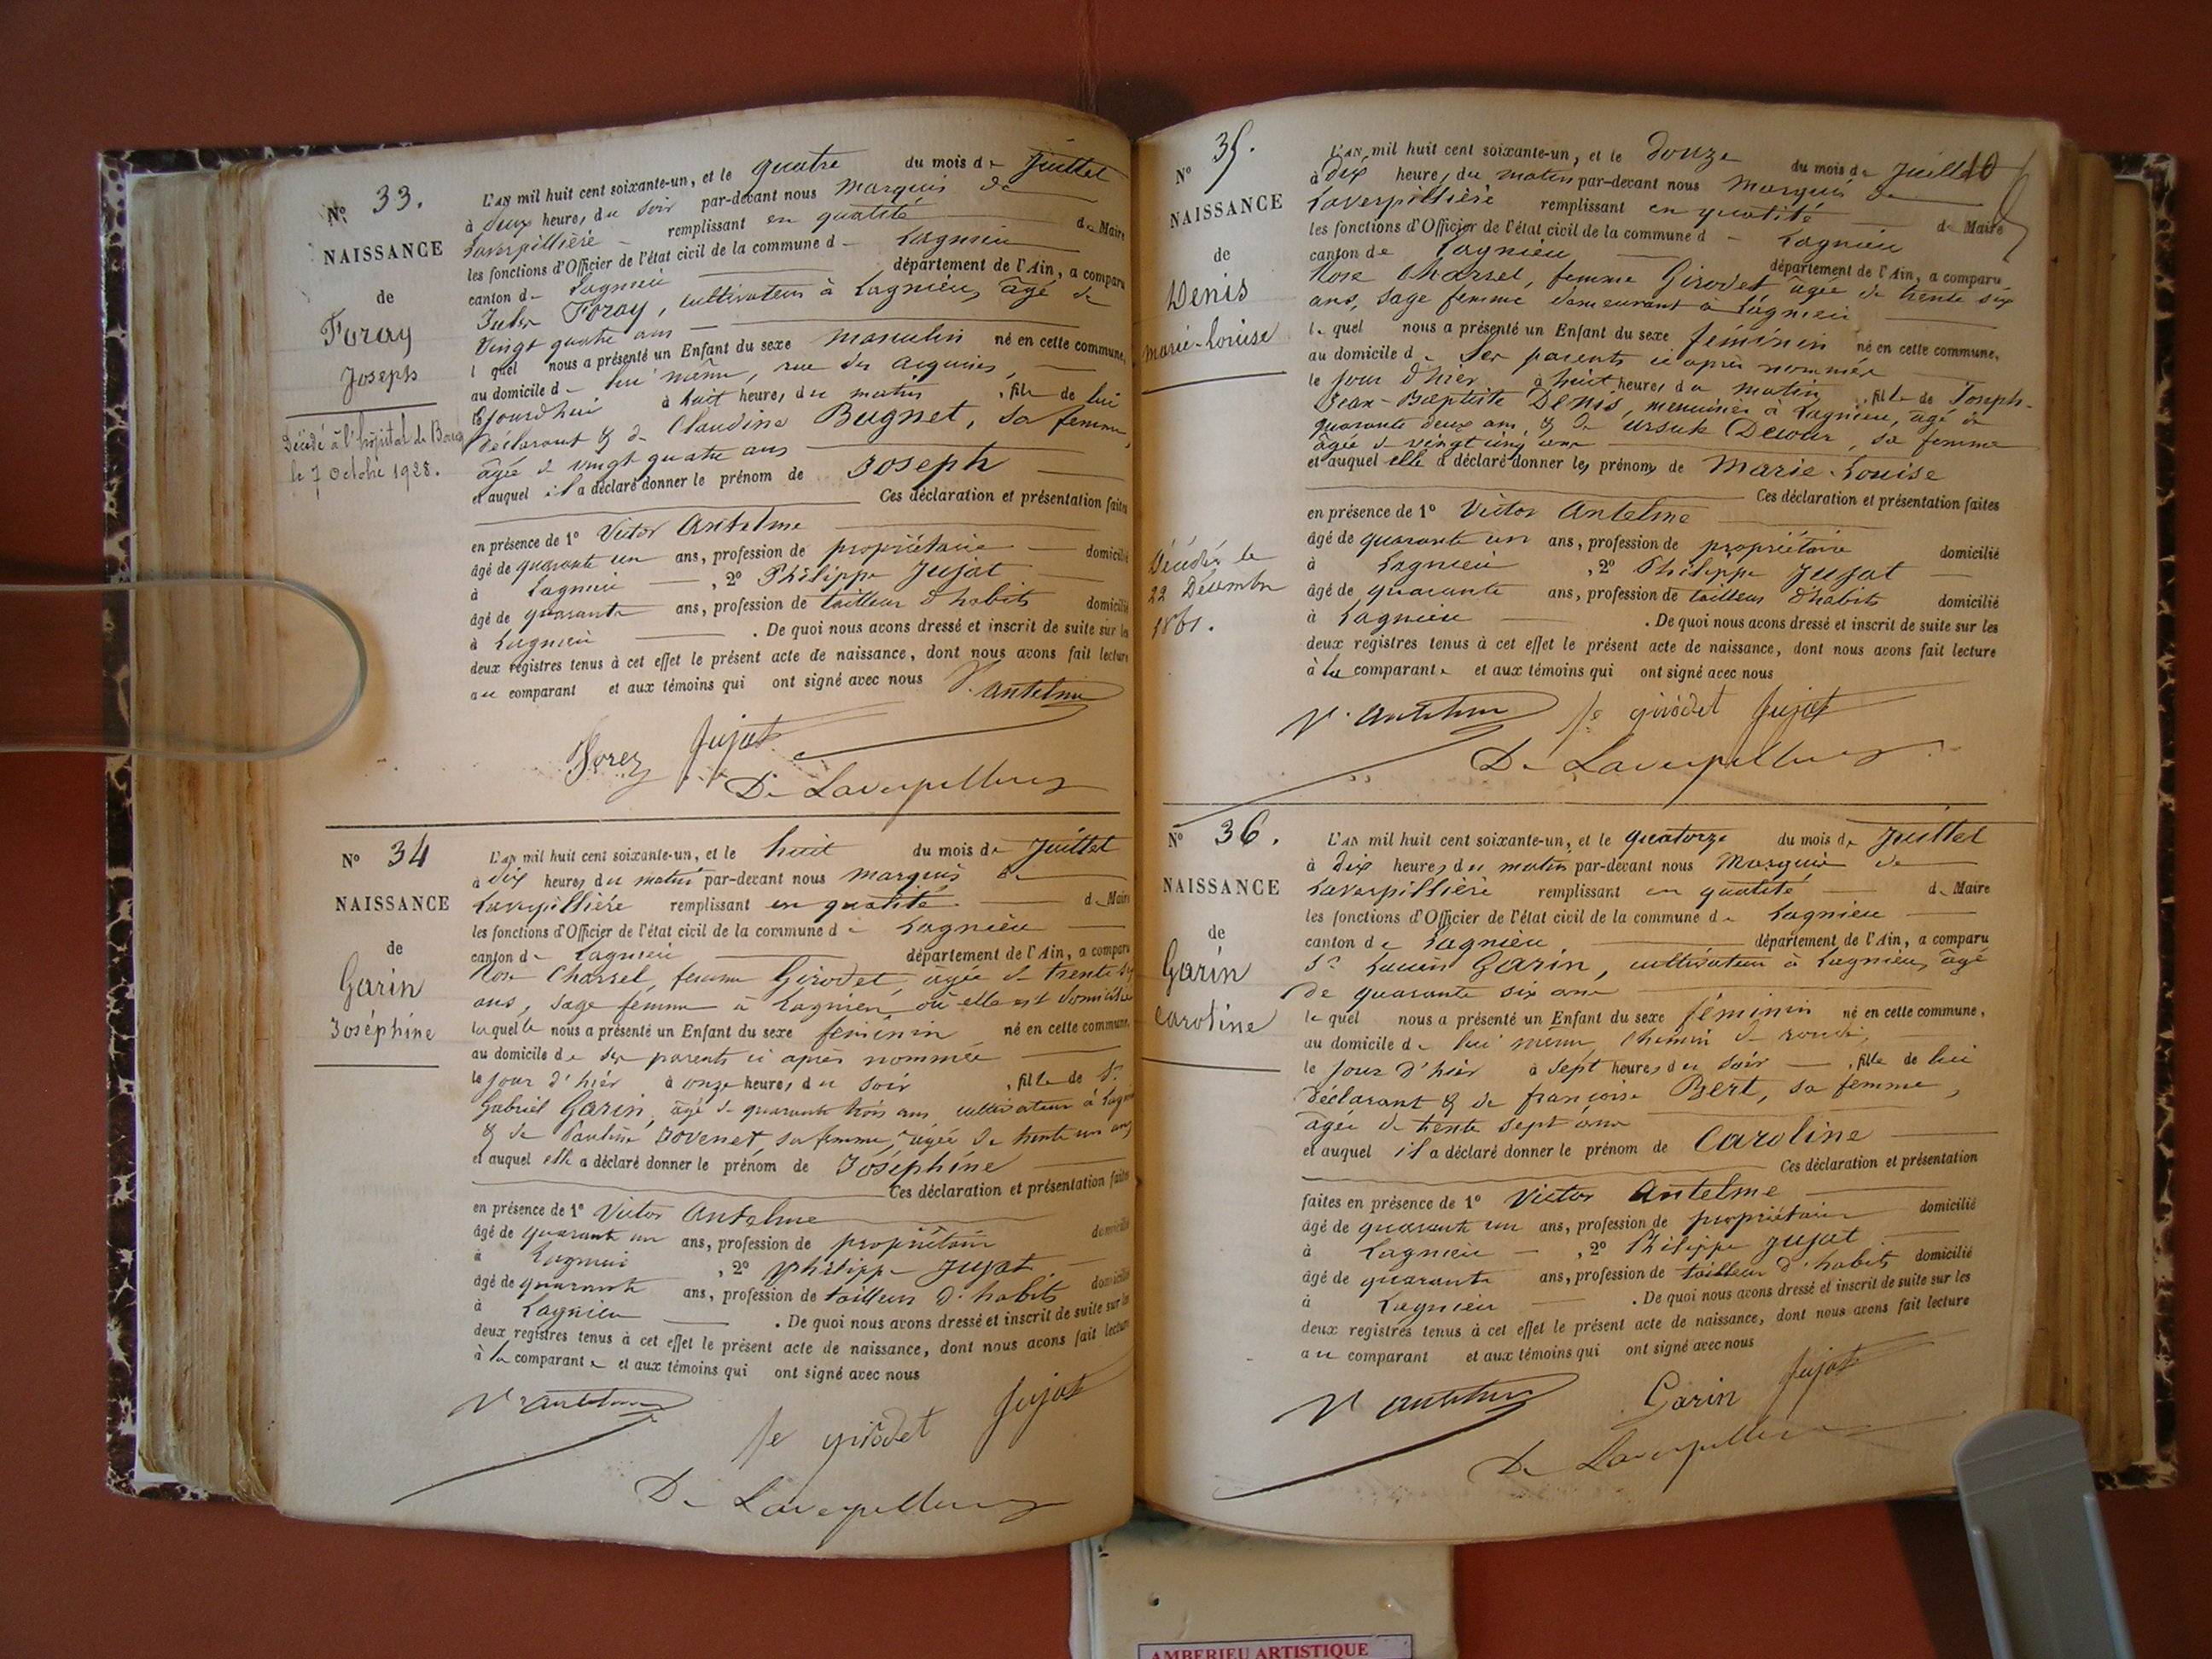 N° 33.
NAISSANCE
de
Foray
Joseph
Décédé à l'hôpital de Bourg
le 7 Octobre 1928.
L'AN mil huit cent soixante-un, et le quatre du mois de Juillet
à deux heures du soir par-devant nous Marquis de
Laverpillière remplissant en qualité de Maire
les fonctions d'Officier de l'état civil de la commune d Lagnieu
canton d Lagnieu département de l'Ain, a comparu
Foray, cultivateur à Lagnieu, âgé de
Vingt quatre ans
l quel nous a présenté un Enfant du sexe masculin né en cette commune,
au domicile d lui même, rue des
aujourd'hui à huit heures du matin, fils de lui
Déclarant & de Claudine Bugnet, sa femme,
âgée de vingt quatre ans
et auquel il a déclaré donner le prénom de Joseph
Ces déclaration et présentation faites
en présence de 1° Victor Antelme
âgé de quarante un ans, profession de propriétaire domicilié
à Lagnieu, 2° Philippe Jujat
âgé de quarante ans, profession de tailleur d'habits domicilié
à Lagnieu. De quoi nous avons dressé et inscrit de suite sur les
deux registres tenus à cet effet le présent acte de naissance, dont nous avons fait lecture
au comparant et aux témoins qui ont signé avec nous V. Antelme
Jujat
De Laverpilliere
N° 34
NAISSANCE
de
Garin
Joséphine
L'AN mil huit cent soixante-un, et le huit du mois de Juillet
à dix heures du matin par-devant nous Marquis de
Laverpillière remplissant en qualité de Maire
les fonctions d'Officier de l'état civil de la commune d Lagnieu
canton d Lagnieu département de l'Ain, a comparu
Rose Charrel, femme Girodet, âgée de trente six
ans, sage femme à Lagnieu où elle est domiciliée
laquelle nous a présenté un Enfant du sexe féminin né en cette commune,
au domicile de ses parents ci après nommés
le jour d'hier à onze heures du soir, fille de Sr.
Gabriel Garin, âgé de quarante trois ans cultivateur à Lagnieu
& de Pauline Jovenet sa femme, âgée de trente un ans
et auquel elle a déclaré donner le prénom de Joséphine
Ces déclaration et présentation faites
en présence de 1° Victor Antelme
âgé de quarante un ans, profession de propriétaire domicilié
à Lagnieu, 2° Philippe Jujat
âgé de quarante ans, profession de tailleur d'habits domicilié
à Lagnieu. De quoi nous avons dressé et inscrit de suite sur les
deux registres tenus à cet effet le présent acte de naissance, dont nous avons fait lecture
à la comparante et aux témoins qui ont signé avec nous
V Antelme fe girodet Jujat
De Laverpilliere
N° 35.
NAISSANCE
de
Denis
Marie-Louise
Décédée le
22 Décembre
1861.
10
L'AN mil huit cent soixante-un, et le douze du mois de Juillet
à dix heures du matin par-devant nous Marquis de
Laverpillière remplissant en qualité de Maire
les fonctions d'Officier de l'état civil de la commune d Lagnieu
canton de Lagnieu département de l'Ain, a comparu
Rose Charrel, femme Girodet âgée de trente six
ans, sage femme demeurant à Lagnieu
le quel nous a présenté un Enfant du sexe féminin né en cette commune,
au domicile de ses parents ci après nommés
le jour d'hier à huit heures du matin, fille de Joseph-
Jean-Baptiste Denis, menuisier à Lagnieu, âgé de
quarante deux ans, & de Ursule Decour, sa femme
âgée de vingt cinq ans
et auquel elle a déclaré donner les prénoms de Marie-Louise
Ces déclaration et présentation faites
en présence de 1° Victor Antelme
âgé de quarante un ans, profession de propriétaire domicilié
à Lagnieu, 2° Philippe Jujat
âgé de quarante ans, profession de tailleur d'habits domicilié
à Lagnieu. De quoi nous avons dressé et inscrit de suite sur les
deux registres tenus à cet effet le présent acte de naissance, dont nous avons fait lecture
à la comparante et aux témoins qui ont signé avec nous
V. Antelme fe girodet Jujat
De Laverpilliere
N° 36.
NAISSANCE
de
Garin
Caroline
L'AN mil huit cent soixante-un, et le quatorze du mois de Juillet
à dix heures du matin par-devant nous Marquis de
Laverpillière remplissant en qualité de Maire
les fonctions d'Officier de l'état civil de la commune de Lagnieu
canton de Lagnieu département de l'Ain, a comparu
Sr. Lucien Garin, cultivateur à Lagnieu, âgé
de quarante six ans
le quel nous a présenté un Enfant du sexe féminin né en cette commune,
au domicile de lui même, Chemin de ronde,
le jour d'hier à sept heures du soir, fille de lui
déclarant & de françoise Bert, sa femme,
âgée de trente sept ans
et auquel il a déclaré donner le prénom de Caroline
Ces déclaration et présentation
faites en présence de 1° Victor Antelme
âgé de quarante un ans, profession de propriétaire domicilié
à Lagnieu, 2° Philippe Jujat
âgé de quarante ans, profession de tailleur d'habits domicilié
à Lagnieu. De quoi nous avons dressé et inscrit de suite sur les
deux registres tenus à cet effet le présent acte de naissance, dont nous avons fait lecture
au comparant et aux témoins qui ont signé avec nous
V Antelme Garin Jujat
De Laverpilliere
AMBERIEU ARTISTIQUE